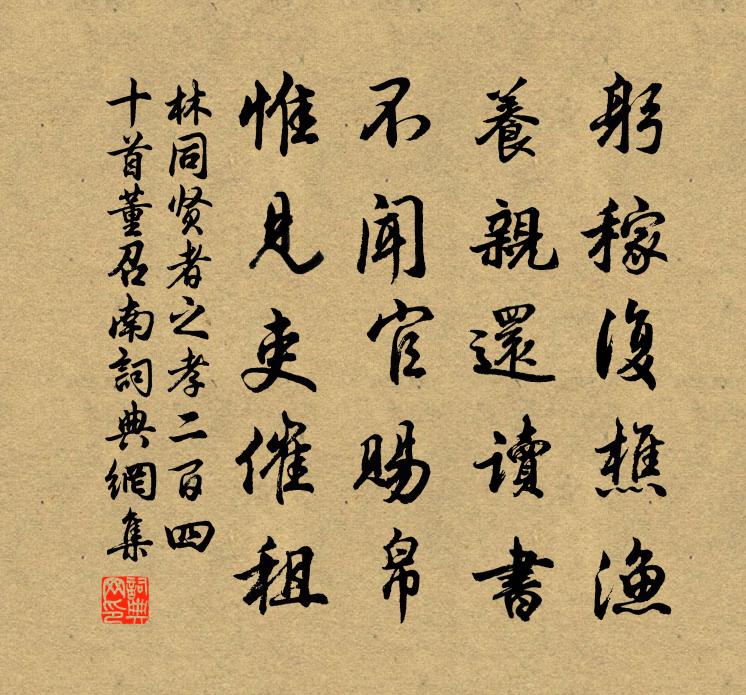 躬稼復樵漁
養親還讀書
不聞官賜帛
惟見吏催租
林同贤者之孝二百四
十首董召南詞典網集
詞典網印